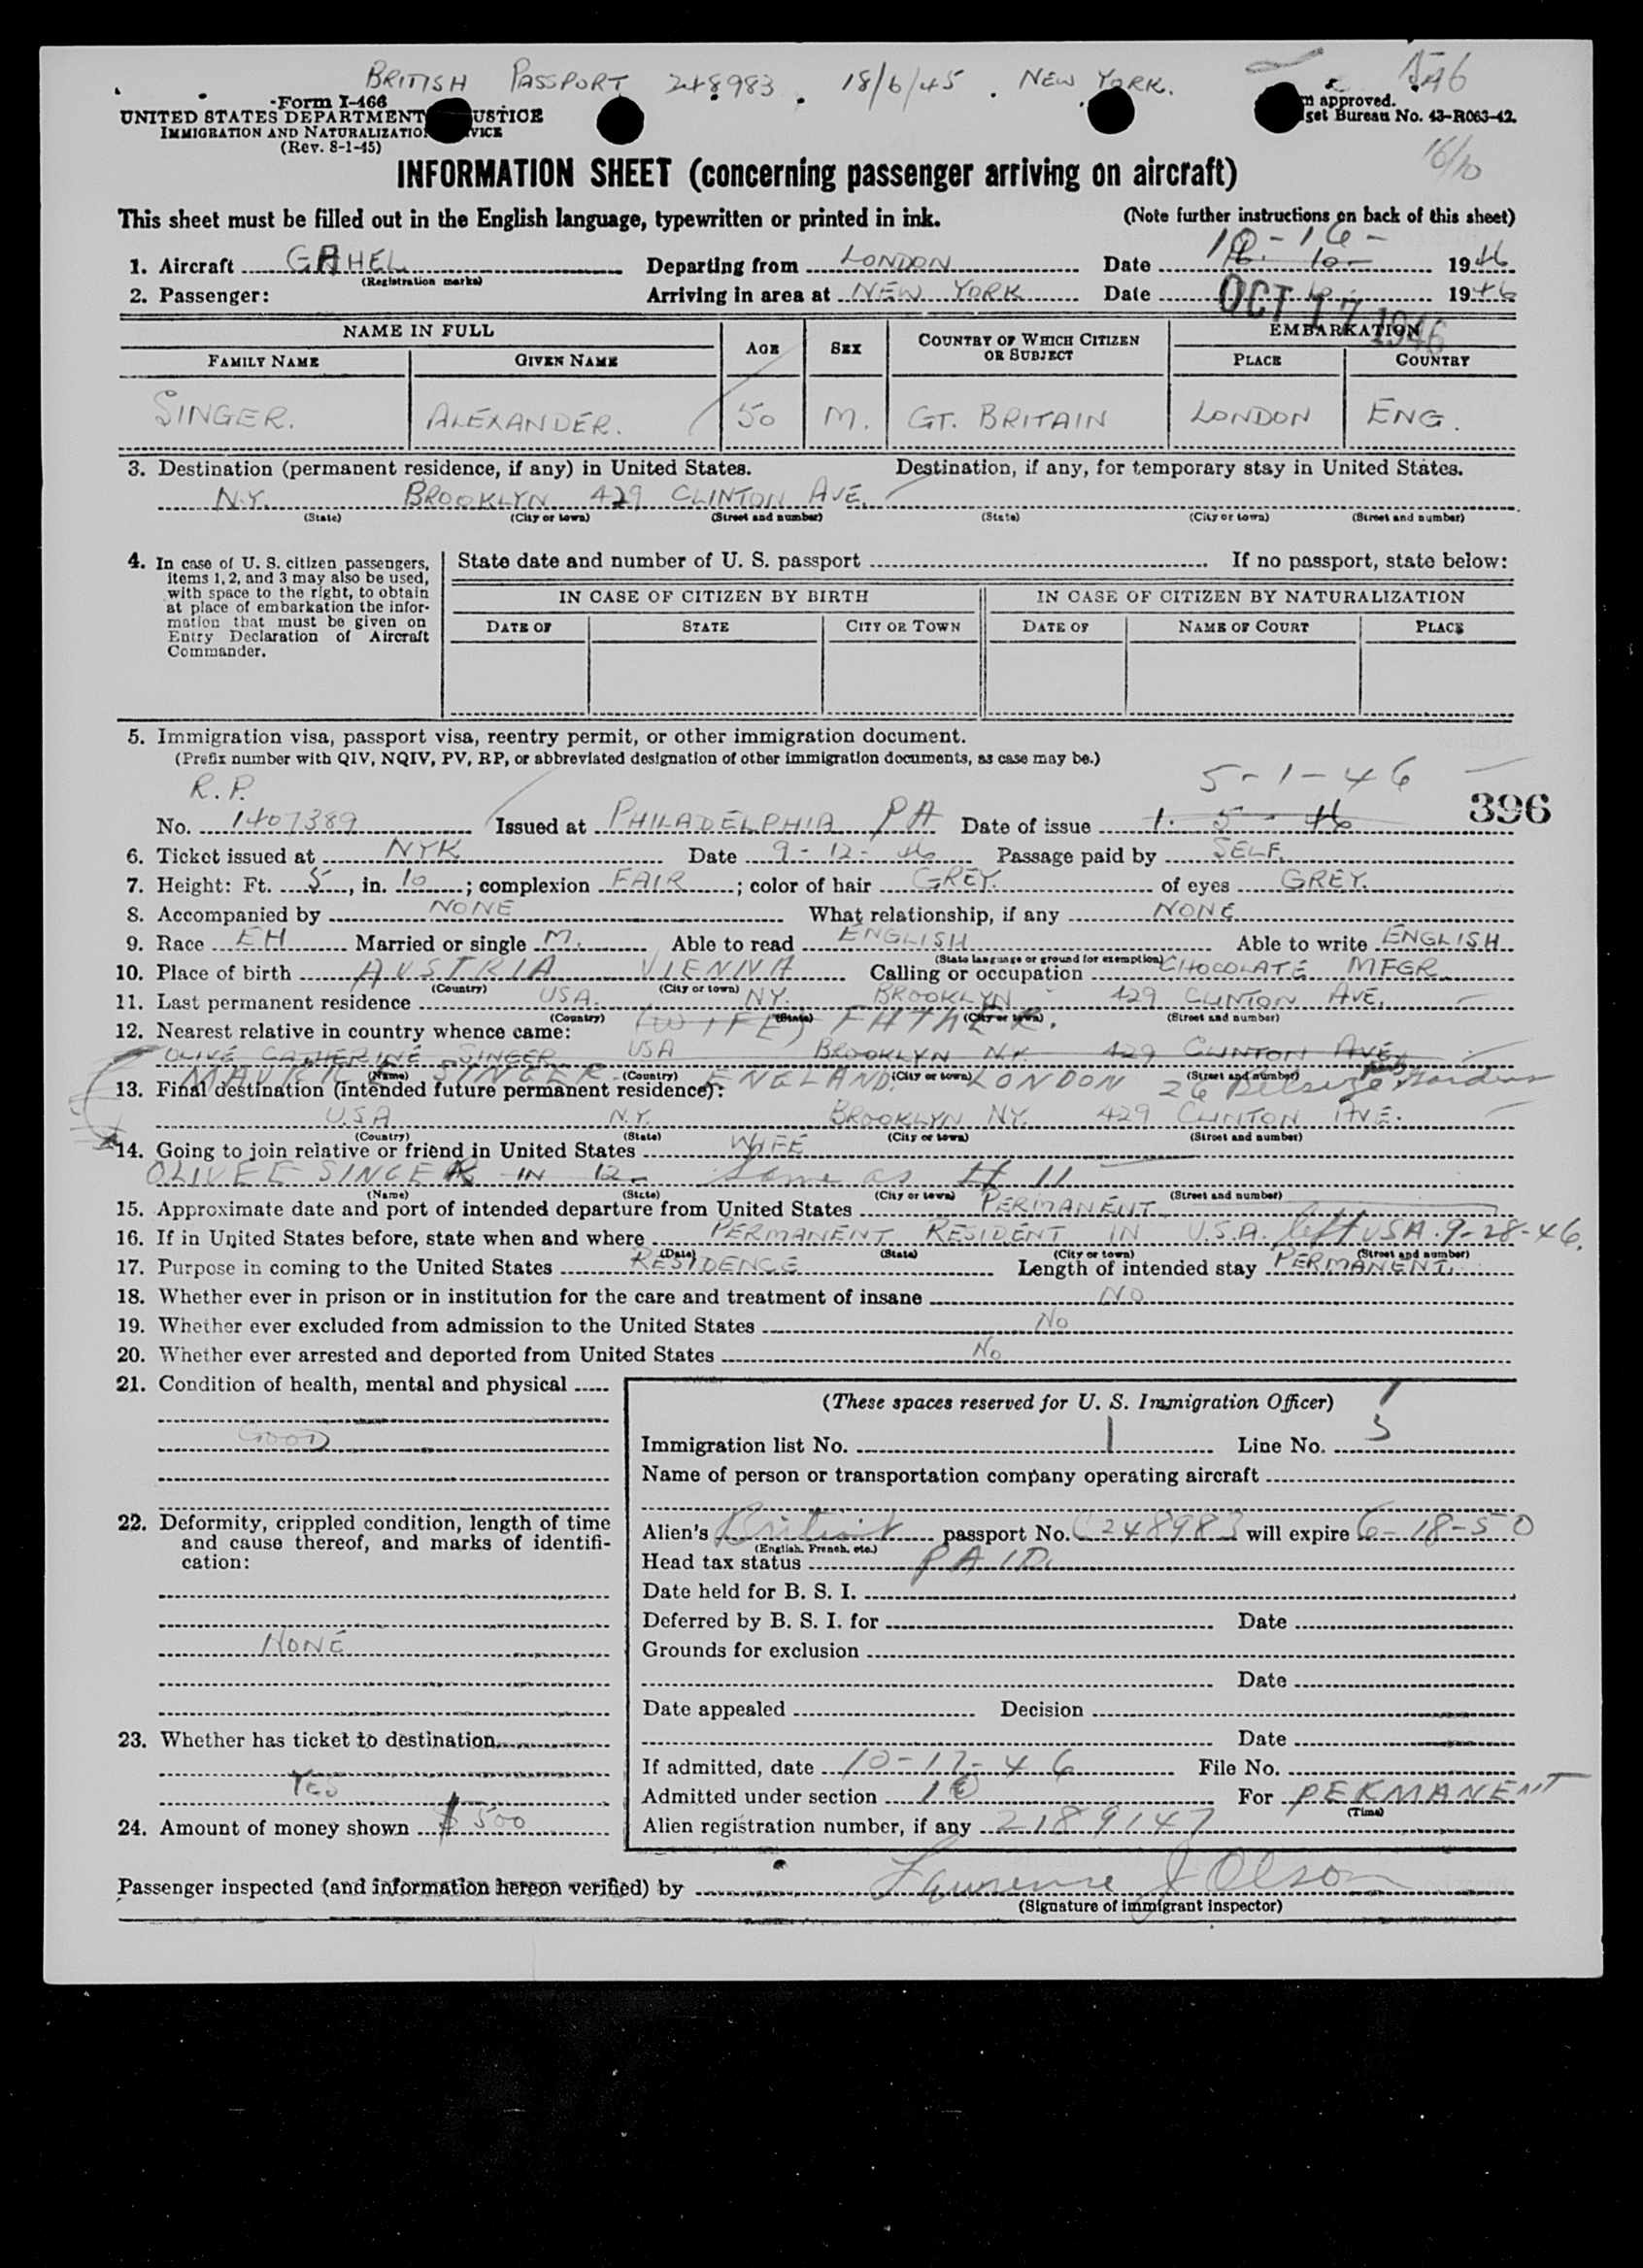 BRITISH PASSPORT 248983. 18/6/45. NEW YORK.
Form I-466
UNITED STATES DEPARTMENT USTICE
IMMIGRATION AND NATURALIZATIO VICE
(Rev. 8-1-45)
approved.
get Bureau No. 43-R063-42.
16/10
INFORMATION SHEET (concerning passenger arriving on aircraft)
This sheet must be filled out in the English language, typewritten or printed in ink. (Note further instructions on back of this sheet)
1. Aircraft GAHEL Departing from LONDON Date 10-16- 1946
(Registration marks)
2. Passenger: Arriving in area at NEW YORK Date OCT 17 1946 1946
NAME IN FULL AGE SEX COUNTRY OF WHICH CITIZEN OR SUBJECT EMBARKATION
FAMILY NAME GIVEN NAME PLACE COUNTRY
SINGER. ALEXANDER. 50 M. GT. BRITAIN LONDON ENG.
3. Destination (permanent residence, if any) in United States. Destination, if any, for temporary stay in United States.
N.Y. BROOKLYN 429 CLINTON AVE.
(State) (City or town) (Street and number) (State) (City or town) (Street and number)
4. In case of U. S. citizen passengers, items 1, 2, and 3 may also be used, with space to the right, to obtain at place of embarkation the information that must be given on Entry Declaration of Aircraft Commander.
State date and number of U. S. passport If no passport, state below:
IN CASE OF CITIZEN BY BIRTH IN CASE OF CITIZEN BY NATURALIZATION
DATE OF STATE CITY OR TOWN DATE OF NAME OF COURT PLACE
5. Immigration visa, passport visa, reentry permit, or other immigration document.
(Prefix number with QIV, NQIV, PV, RP, or abbreviated designation of other immigration documents, as case may be.)
R.P. 5-1-46
396
No. 1407389 Issued at PHILADELPHIA PA Date of issue 1. 5 - 46
6. Ticket issued at NYK Date 9-12-46 Passage paid by SELF.
7. Height: Ft. 5, in. 10; complexion FAIR; color of hair GREY. of eyes GREY.
8. Accompanied by NONE What relationship, if any NONE
9. Race EH Married or single M. Able to read ENGLISH Able to write ENGLISH
(State language or ground for exemption)
10. Place of birth AUSTRIA VIENNA Calling or occupation CHOCOLATE MFGR
(Country) (City or town)
11. Last permanent residence USA. NY. BROOKLYN 429 CLINTON AVE.
(Country) (State) (City or town) (Street and number)
12. Nearest relative in country whence came: (WIFE) FATHER.
OLIVE CATHERINE SINGER USA BROOKLYN N.Y. 429 CLINTON AVE
(Name) (Country) (City or town) (Street and number)
SINGER ENGLAND. LONDON 26 Belsize Gardens
13. Final destination (intended future permanent residence):
U.S.A N.Y. BROOKLYN NY. 429 CLINTON AVE.
(Country) (State) (City or town) (Street and number)
14. Going to join relative or friend in United States WIFE
OLIVE E SINGER IN 12 Same as # 11
(Name) (State) (City or town) (Street and number)
15. Approximate date and port of intended departure from United States PERMANENT
16. If in United States before, state when and where PERMANENT RESIDENT IN U.S.A. left USA 9-28-46.
(Date) (State) (City or town) (Street and number)
17. Purpose in coming to the United States RESIDENCE Length of intended stay PERMANENT.
18. Whether ever in prison or in institution for the care and treatment of insane NO
19. Whether ever excluded from admission to the United States No
20. Whether ever arrested and deported from United States No
21. Condition of health, mental and physical
GOOD
22. Deformity, crippled condition, length of time and cause thereof, and marks of identification:
NONE
23. Whether has ticket to destination
YES
24. Amount of money shown $ 500
(These spaces reserved for U. S. Immigration Officer)
Immigration list No. 1 Line No. 3
Name of person or transportation company operating aircraft
Alien's British passport No. C248983 will expire 6-18-50
(English, French, etc.)
Head tax status PAID.
Date held for B. S. I.
Deferred by B. S. I. for Date
Grounds for exclusion
Date
Date appealed Decision
Date
If admitted, date 10-17-46 File No.
Admitted under section For PERMANENT
(Time)
Alien registration number, if any 2189147
Passenger inspected (and information hereon verified) by Lawrence J Olson
(Signature of immigrant inspector)